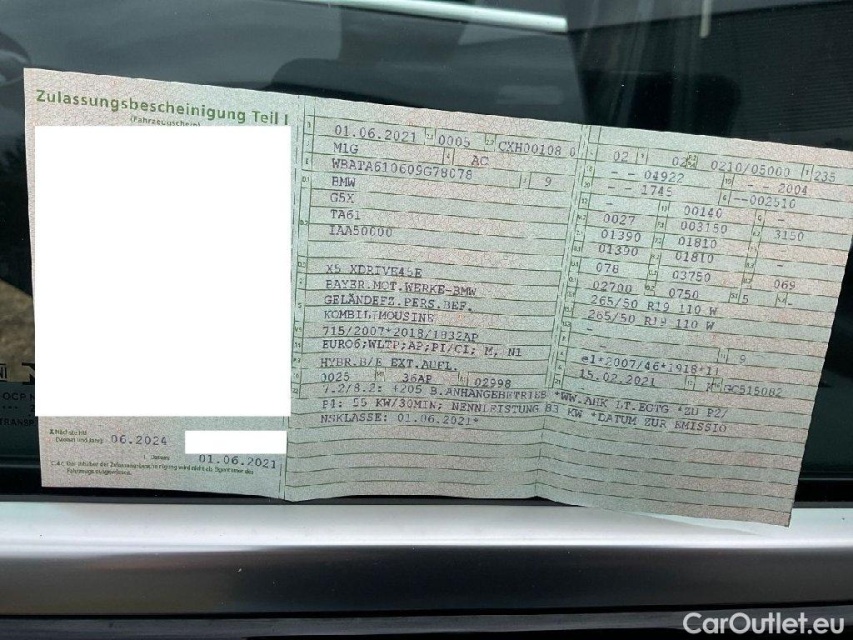 Zulassungsbescheinigung Teil I
(Fahrzeugschein)
06.2024
01.06.2021
01.06.2021 0005 CXH00108 0
M1G AC
WBATA610609G78078 9
BMW
G5X
TA61
IAA50000
X5 XDRIVE45E
BAYER.MOT.WERKE-BMW
GELÄNDEFZ.PERS.BEF.
KOMBILIMOUSINE
715/2007*2018/1832AP
EURO6;WLTP;AP;PI/CI; M, N1
HYBR.B/E EXT.AUFL.
0025 36AP 02998
02 02 0210/05000 235
-- 04922 -- 2004
-- 1745 --002510
- 00140 -
0027 003150 3150
01390 01810 -
01390 01810 -
078 03750 069
02700 0750 5 -
265/50 R19 110 W
265/50 R19 110 W
- 9
e1*2007/46*1918*11
15.02.2021 K GC515082
7.2/8.2: +205 B.ANHANGEBETRIEB *WW.AHK LT.EGTG *ZU P2/
P4: 55 KW/30MIN; NENNLEISTUNG 83 KW *DATUM ZUR EMISSIO
NSKLASSE: 01.06.2021*
CarOutlet.eu